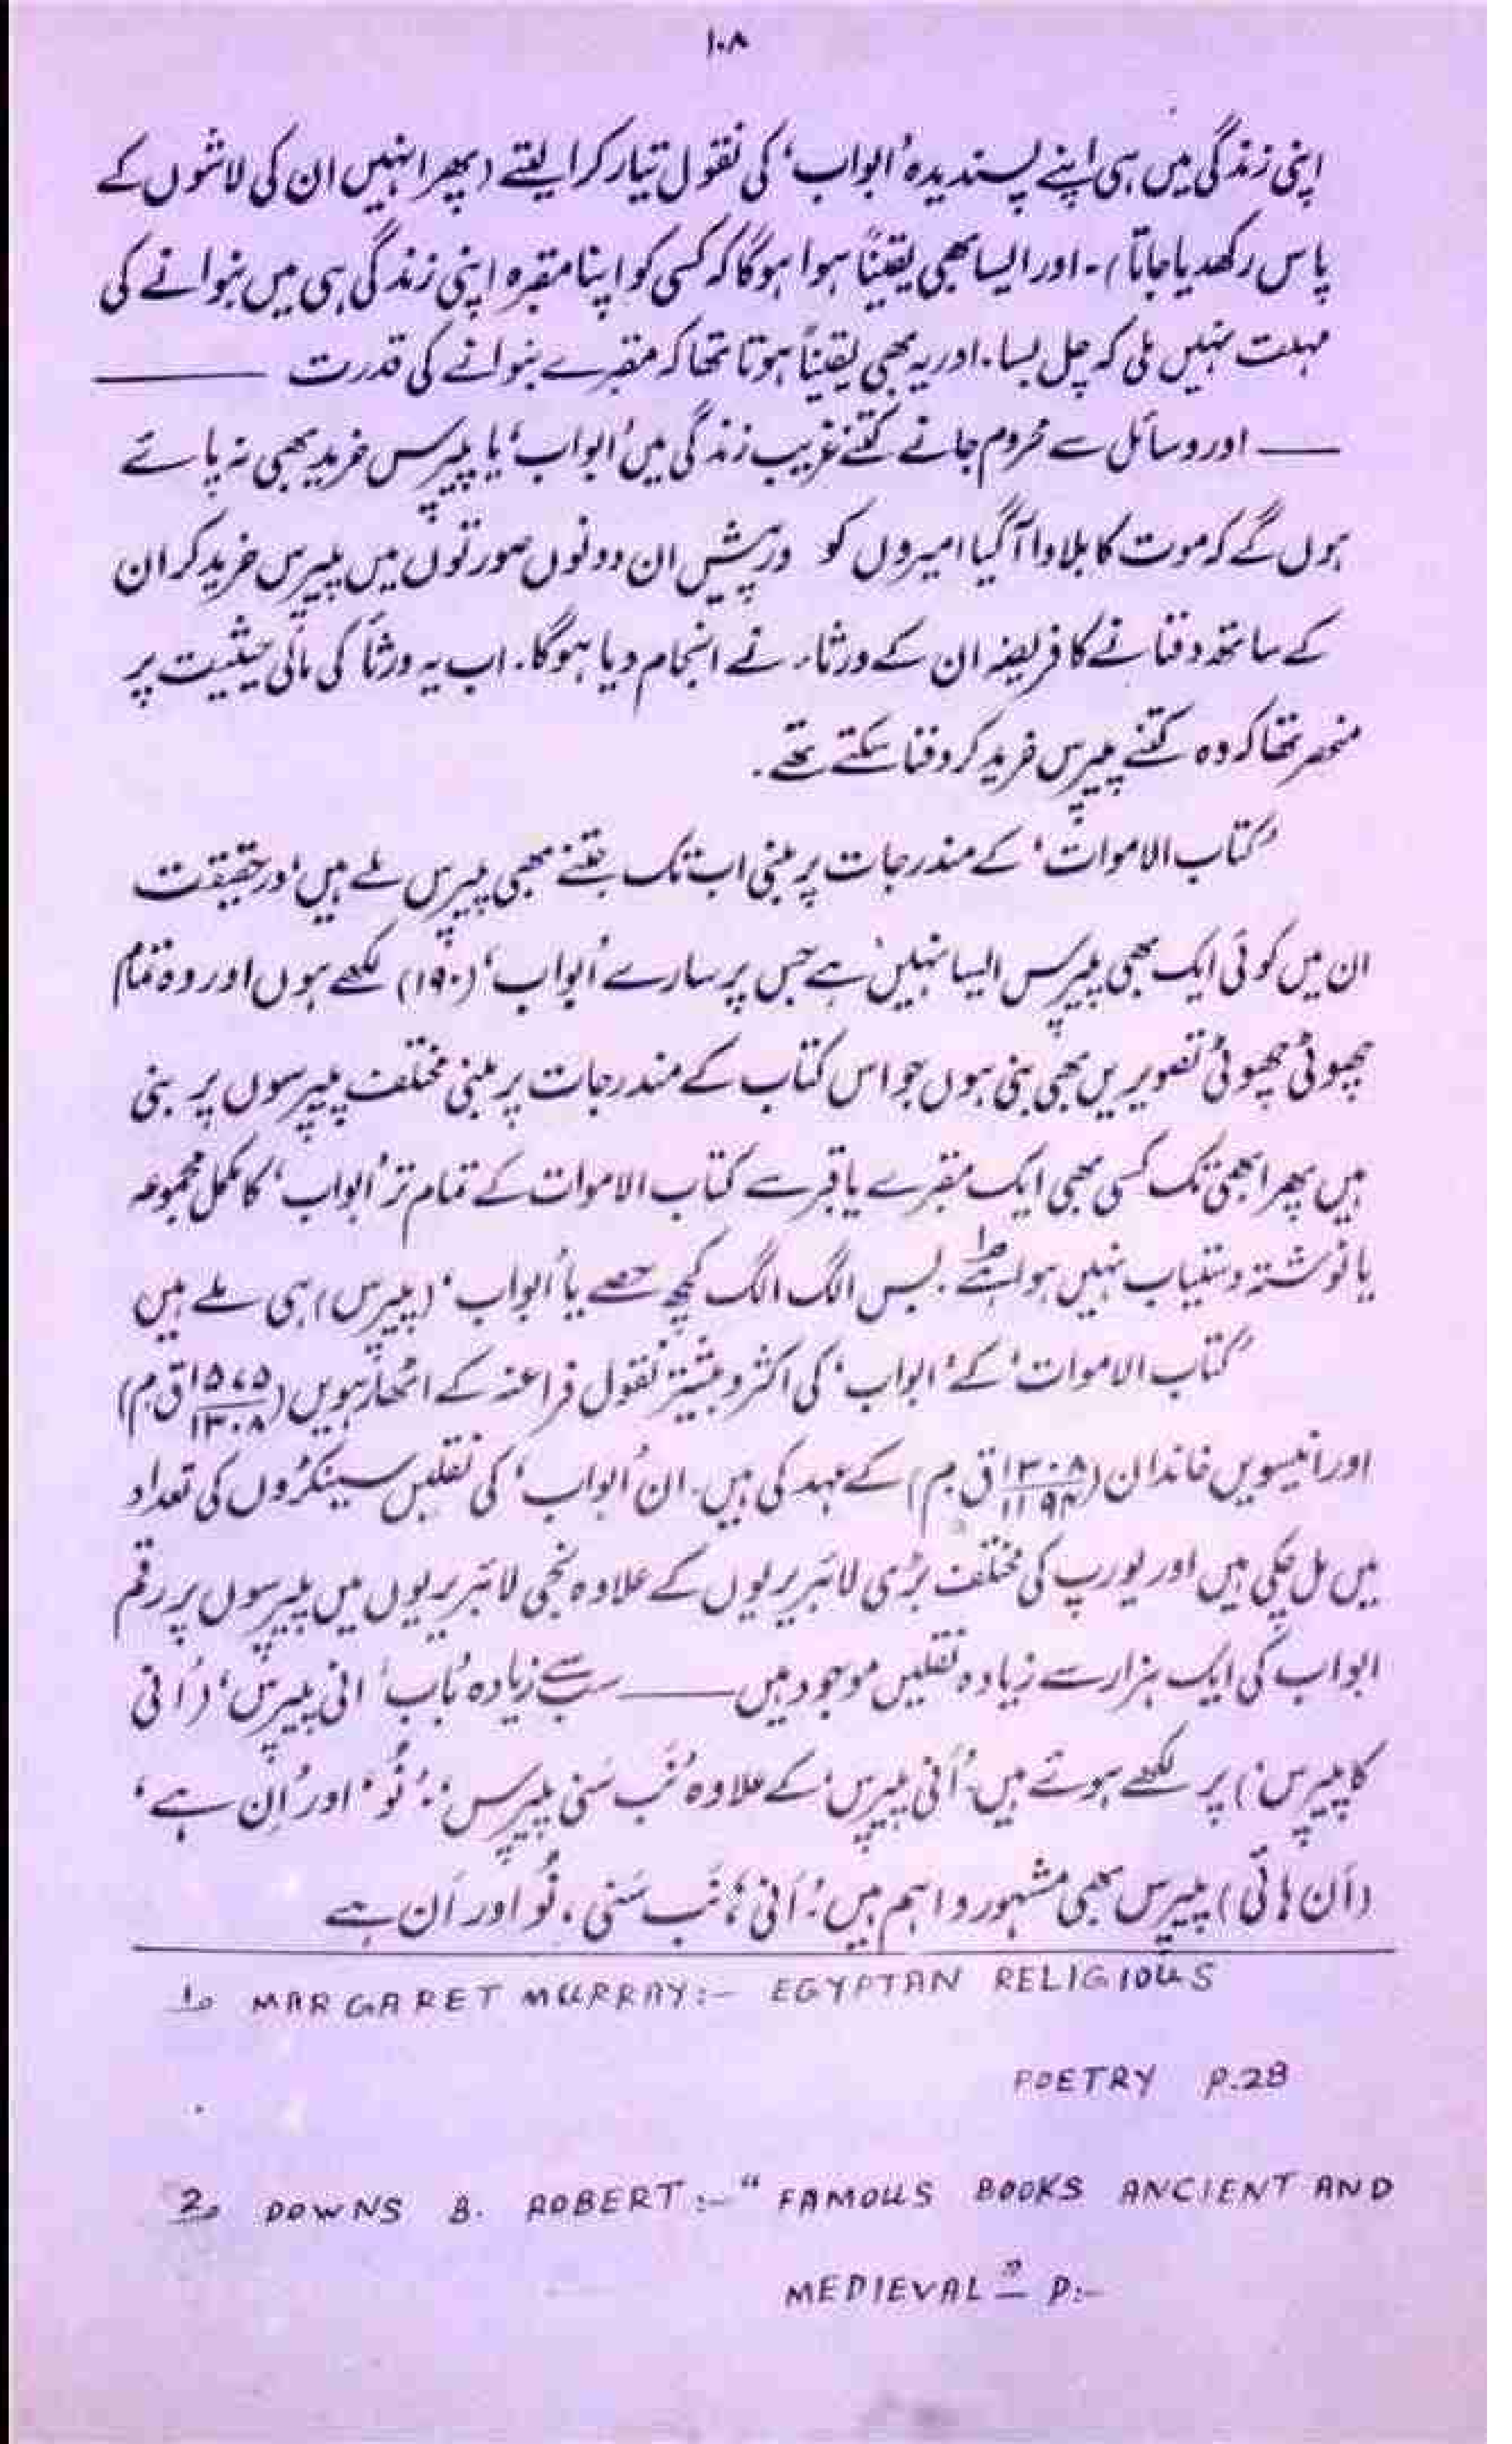 ۱۰۸
اپنی زندگی میں ہی اپنے پسندیدہ 'ابواب' کی نقول تیار کرا لیتے (پھر انہیں ان کی لاشوں کے
پاس رکھدیا جاتا)۔ اور ایسا بھی یقیناً ہوا ہوگا کہ کسی کو اپنا مقبرہ اپنی زندگی ہی میں بنوانے کی
مہلت نہیں ملی کہ چل بسا۔ اور یہ بھی یقیناً ہوتا تھا کہ مقبرے بنوانے کی قدرت ———
— اور وسائل سے محروم جانے کتنے غریب زندگی میں 'ابواب' یا پیپرس خرید بھی نہ پائے
ہوں گے کہ موت کا بلاوا آ گیا امیروں کو درپیش ان دونوں صورتوں میں پیپرس خرید کر ان
کے ساتھ دفنانے کا فریضہ ان کے ورثاء نے انجام دیا ہوگا۔ اب یہ ورثا کی مالی حیثیت پر
منحصر تھا کہ وہ کتنے پیپرس خرید کر دفنا سکتے تھے۔
'کتاب الاموات' کے مندرجات پر مبنی اب تک جتنے بھی پیپرس ملے ہیں' درحقیقت
ان میں کوئی ایک بھی پیپرس ایسا نہیں ہے جس پر سارے 'ابواب' (۱۹۰) لکھے ہوں اور وہ تمام
چھوٹی چھوٹی تصویریں بھی بنی ہوں جو اس کتاب کے مندرجات پر مبنی مختلف پیپرسوں پر بنی
ہیں پھر ابھی تک کسی بھی ایک مقبرے یا قبر سے کتاب الاموات کے تمام تر 'ابواب' کا مکمل مجموعہ
یا نوشتہ دستیاب نہیں ہوا ہے۔ بس الگ الگ کچھ حصے یا 'ابواب' (پیپرس) ہی ملے ہیں
'کتاب الاموات' کے 'ابواب' کی اکثر و بیشتر نقول فراعنہ کے اٹھارہویں (۱۵۷۵/۱۳۰۸ ق م)
اور انیسویں خاندان (۱۳۰۸/۱۱۹۴ ق م) کے عہد کی ہیں۔ ان 'ابواب' کی نقلیں سینکڑوں کی تعداد
میں مل چکی ہیں اور یورپ کی مختلف بڑی لائبریریوں کے علاوہ نجی لائبریریوں میں پیپرسوں پر رقم
ابواب کی ایک ہزار سے زیادہ نقلیں موجود ہیں ——— سب سے زیادہ 'باب' 'انی پیپرس' (اَنی
کا پیپرس) پر لکھے ہوئے ہیں۔ 'اَنی پیپرس' کے علاوہ 'نَب سَنی پیپرس'؛ 'نُو' اور 'اَن ہے'
(اَن ہائی) پیپرس بھی مشہور و اہم ہیں۔ 'اَنی'، نَب سَنی، نُو اور اَن ہے
1. MARGARET MURRAY:- EGYPTAN RELIGIOUS
POETRY P.28
2. DOWNS B. ROBERT:- "FAMOUS BOOKS ANCIENT AND
MEDIEVAL" P:-